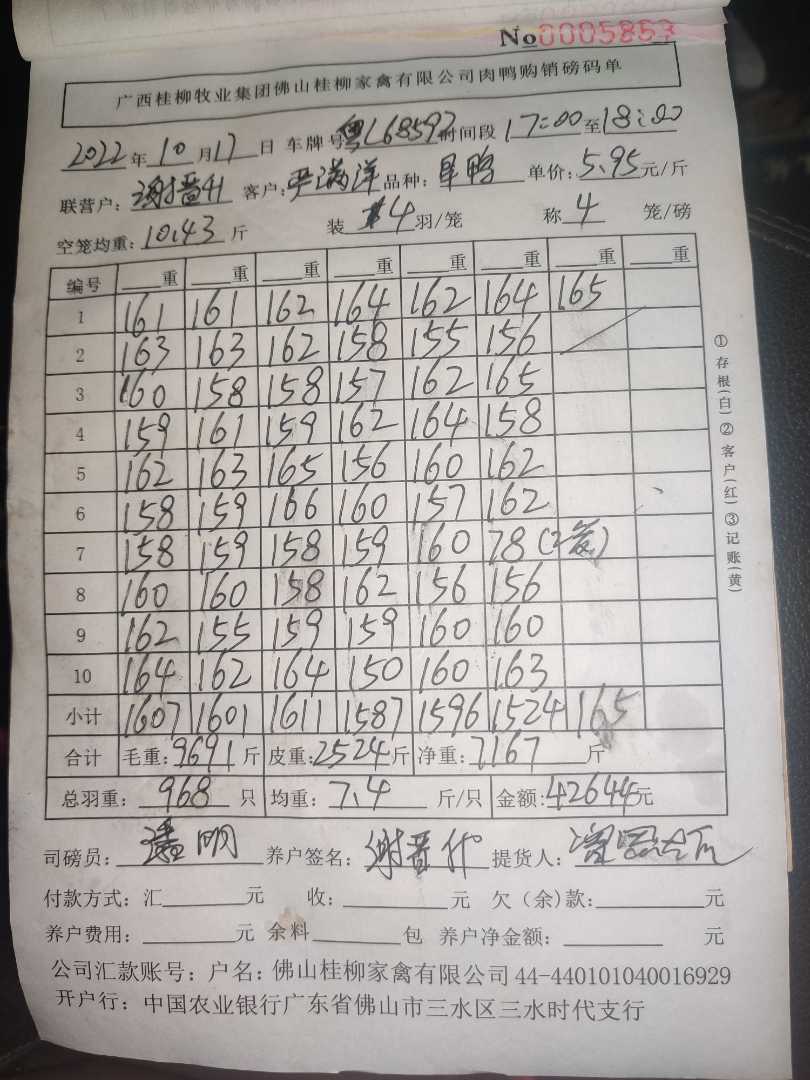 No0005853
广西桂柳牧业集团佛山桂柳家禽有限公司肉鸭购销磅码单
2022年10月17日 车牌号粤L68597时间段17:00至18:00
联营户: 客户:尹满洋品种:旱鸭 单价:5.95元/斤
空笼均重:10.43斤 装4羽/笼 称4笼/磅
编号 重 重 重 重 重 重 重 重
1 161 161 162 164 162 164 165
2 163 163 162 158 155 156
3 160 158 158 157 162 165
4 159 161 159 162 164 158
5 162 163 165 156 160 162
6 158 159 166 160 157 162
7 158 159 158 159 160 78(2笼)
8 160 160 158 162 156 156
9 162 155 159 159 160 160
10 164 162 164 150 160 163
小计 1607 1601 1611 1587 1596 1524 165
合计 毛重:9691斤 皮重:2524斤 净重:7167斤
总羽重:968只 均重:7.4斤/只 金额:42644元
司磅员: 养户签名: 提货人:
付款方式:汇元 收:元 欠(余)款:元
养户费用:元 余料包 养户净金额:元
公司汇款账号:户名:佛山桂柳家禽有限公司44-440101040016929
开户行:中国农业银行广东省佛山市三水区三水时代支行
①存根(白)②客户(红)③记账(黄)